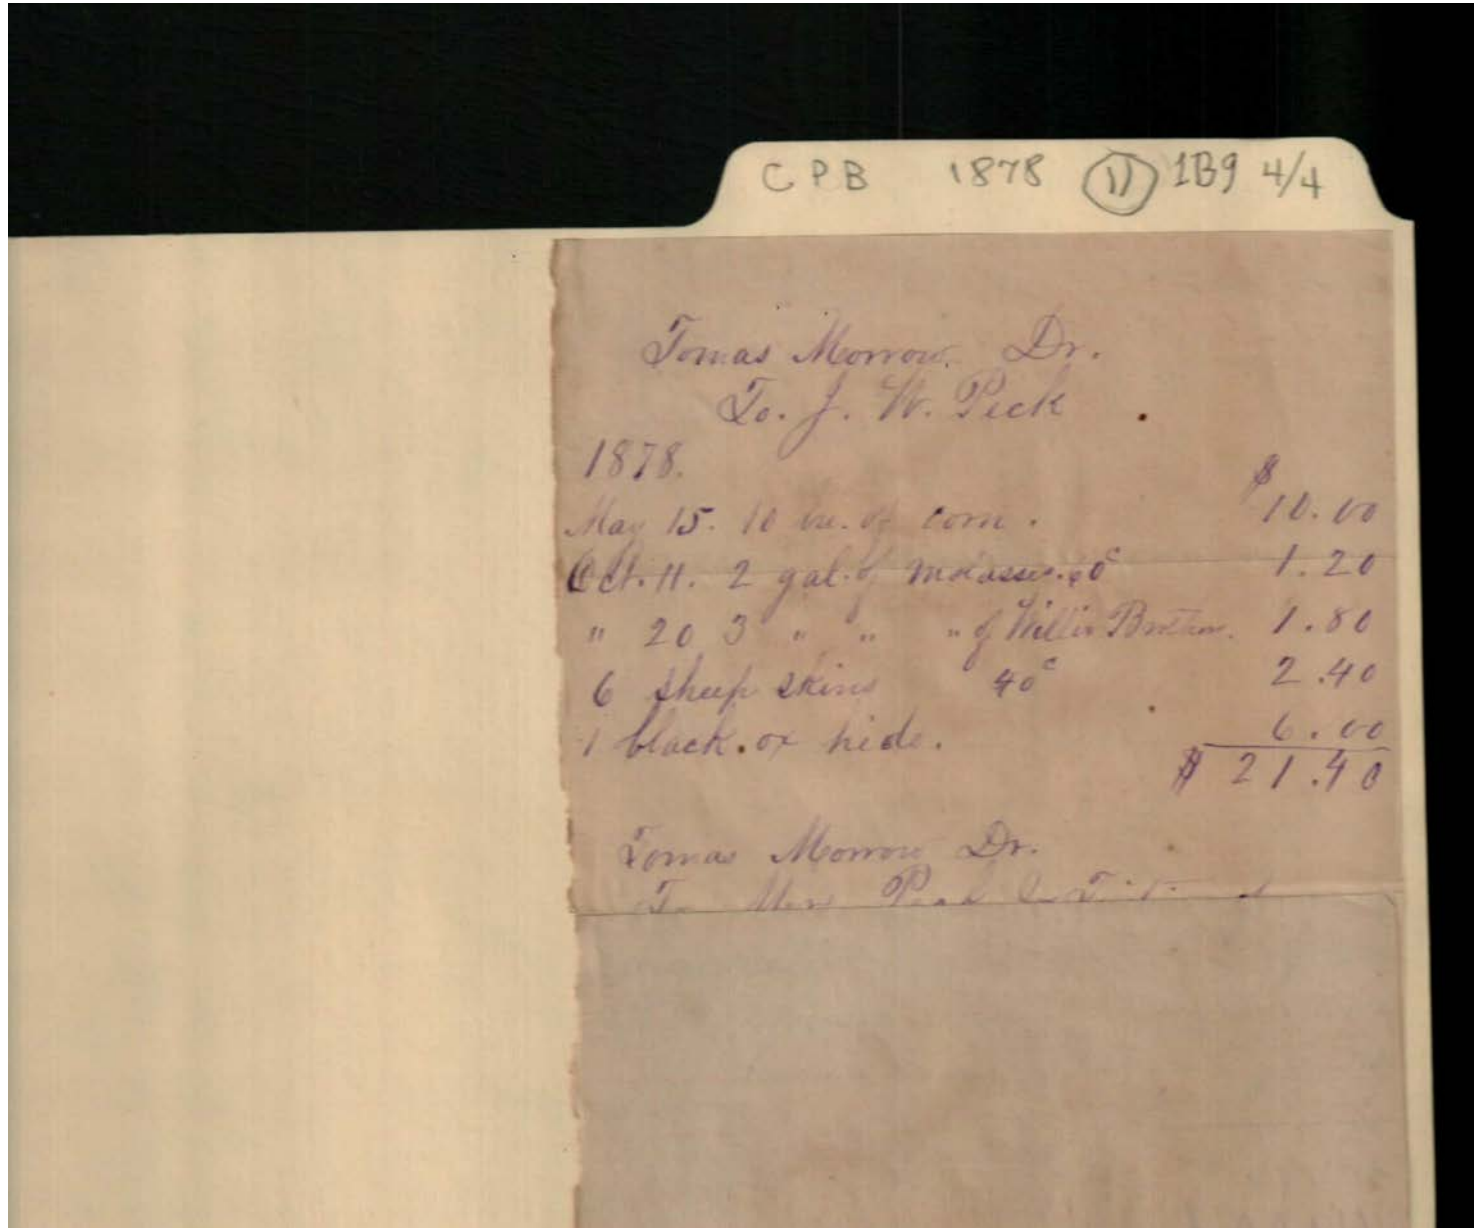 CPB 1878 11 1B9 4/4
Tomas Morrow. Dr.
To. J. W. Peck
1878.
$
May 15. 10 bu. of corn. 10.00
Oct. 11. 2 gal. of molasses. 60c 1.20
" 20 3 " " " of Willis 1.80
6 sheep skins 40c 2.40
1 black. ox hide. 6.00
$ 21.40
Tomas Morrow Dr.